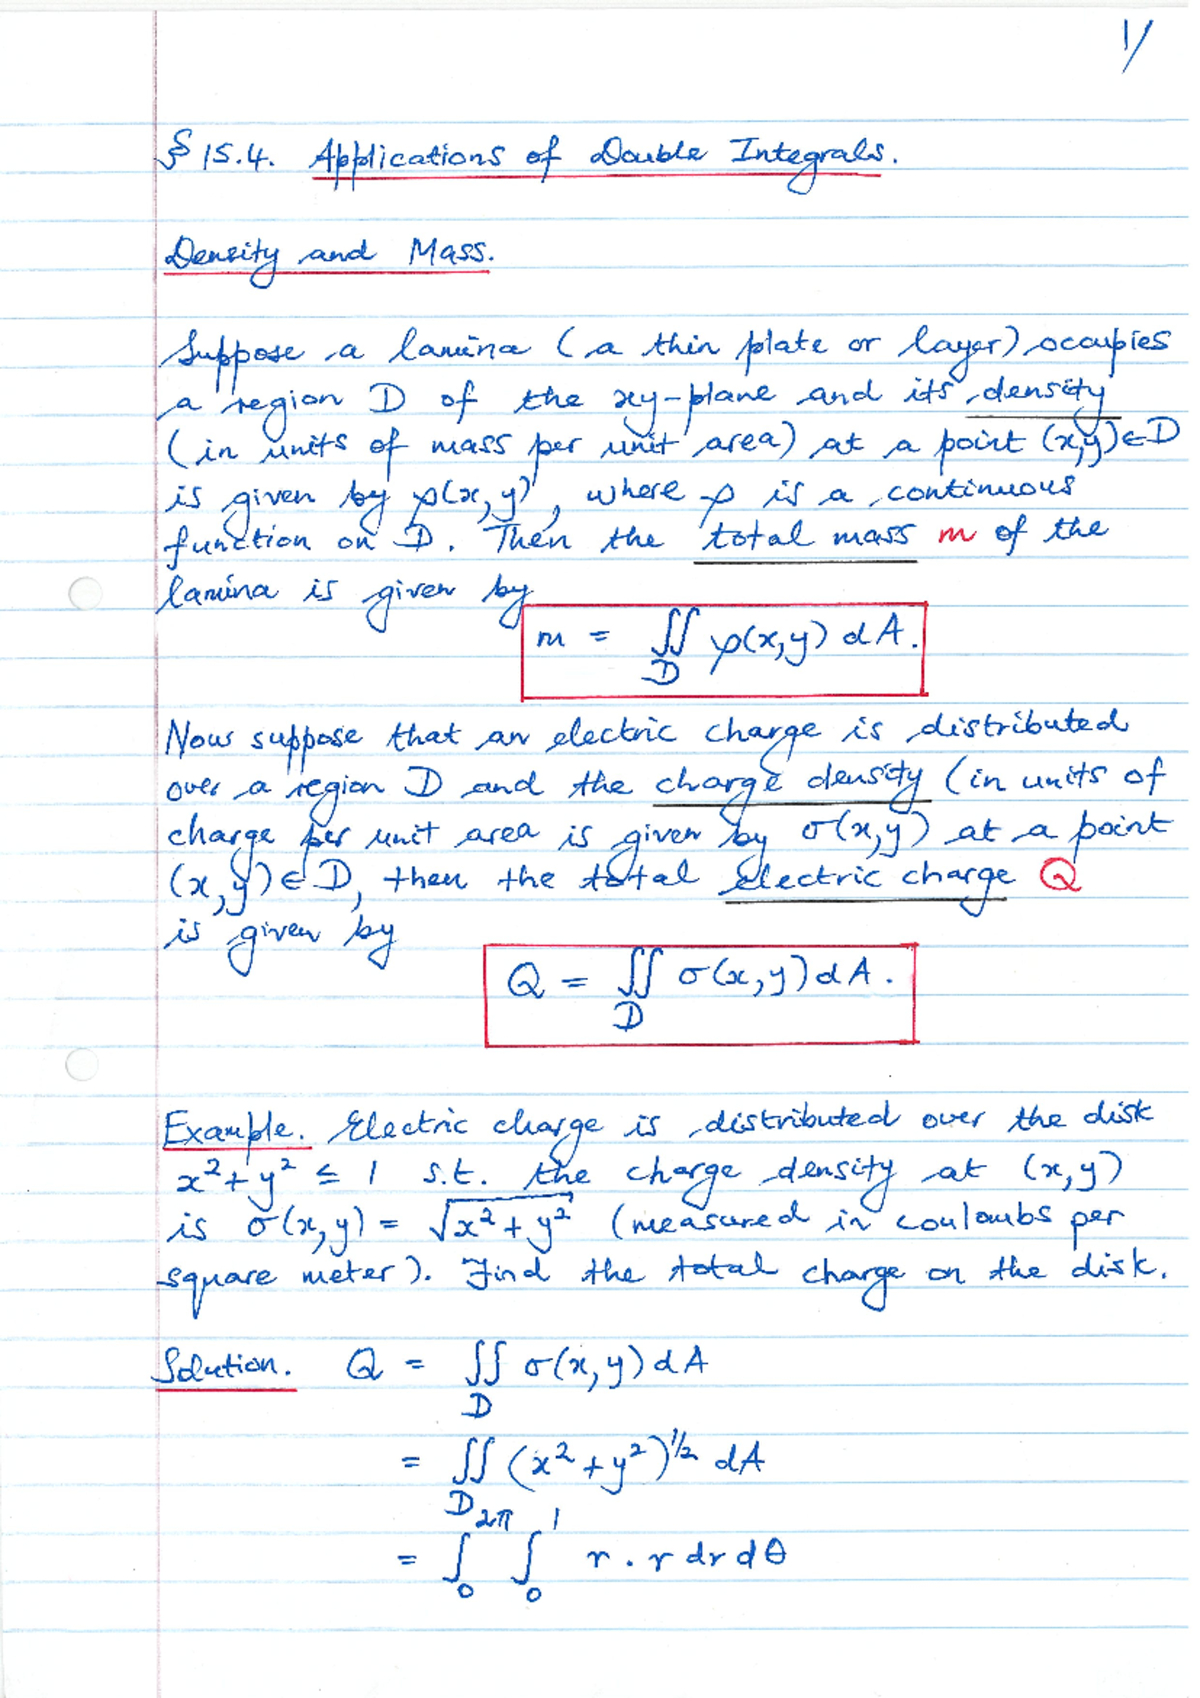 1/
§ 15.4. Applications of Double Integrals.
Density and Mass.
Suppose a lamina (a thin plate or layer) occupies
a region D of the xy-plane and its density
(in units of mass per unit area) at a point (x,y)∈D
is given by ρ(x,y), where ρ is a continuous
function on D. Then the total mass m of the
lamina is given by
m = ∬ ρ(x,y) dA.
D
Now suppose that an electric charge is distributed
over a region D and the charge density (in units of
charge per unit area is given by σ(x,y) at a point
(x,y)∈D, then the total electric charge Q
is given by
Q = ∬ σ(x,y) dA.
D
Example. Electric charge is distributed over the disk
x² + y² ≤ 1 s.t. the charge density at (x,y)
is σ(x,y) = √(x² + y²) (measured in coulombs per
square meter). Find the total charge on the disk.
Solution. Q = ∬ σ(x,y) dA
D
= ∬ (x² + y²)^1/2 dA
D
= ∫₀^2π ∫₀^1 r . r dr dθ